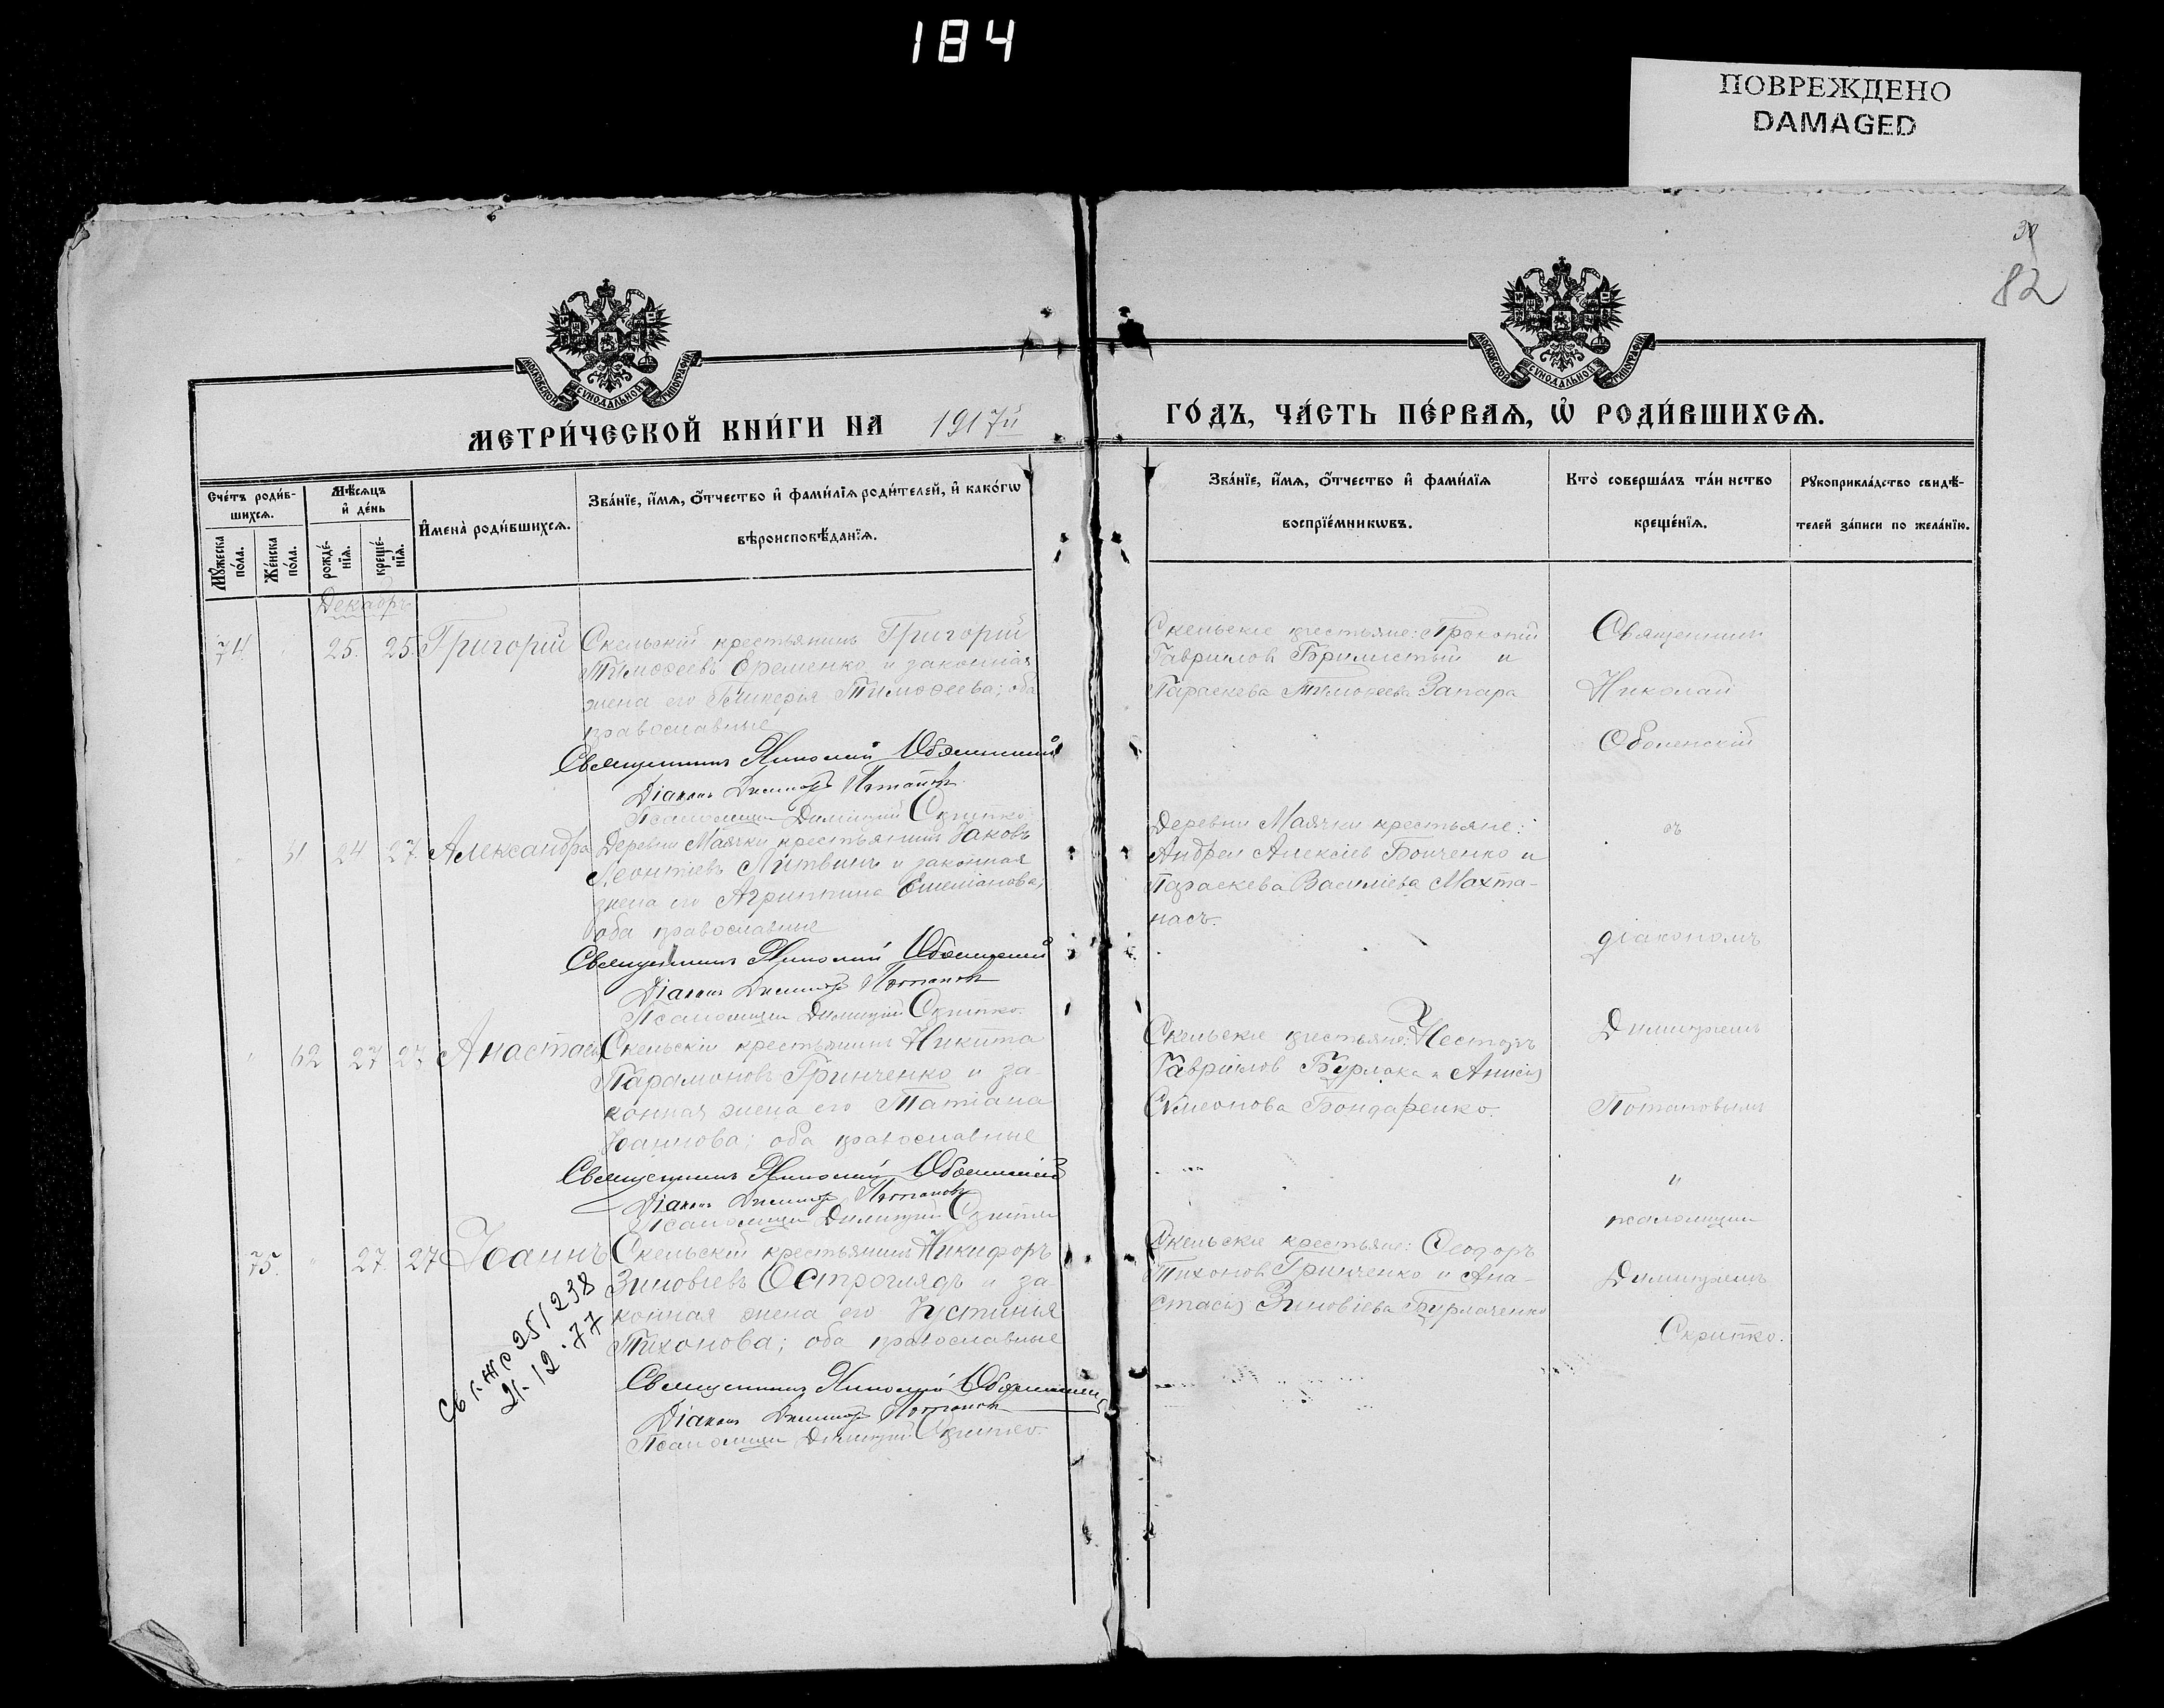 184
ПОВРЕЖДЕНО
DAMAGED
82
МОСКОВСКОЙ СѴНОДАЛЬНОЙ ТИПОГРАФІИ
МОСКОВСКОЙ СѴНОДАЛЬНОЙ ТИПОГРАФІИ
МЕТРИ́ЧЕСКОЙ КНИ́ГИ НА 1917й
ГО́ДЪ, ЧА́СТЬ ПЕ́РВАѦ, Ѡ҆ РОДИ́ВШИХСѦ.
Сче́тъ роди́в-
шихсѧ.
Мꙋ́жеска по́ла.
Же́нска по́ла.
Мѣ́сѧцъ
и҆ де́нь
рожде́-
нїѧ.
креще́-
нїѧ.
И҆мена̀ роди́вшихсѧ.
Зва́нїе, и҆́мѧ, ѻ҆́тчество и҆ фами́лїѧ роди́телей, и҆ како́гѡ
вѣроисповѣ́данїѧ.
Зва́нїе, и҆́мѧ, ѻ҆́тчество и҆ фами́лїѧ
воспрїе́мникѡвъ.
Кто̀ соверша́лъ та́инство
креще́нїѧ.
Рꙋкоприкла́дство свидѣ́-
телей за́писи по жела́нїю.
Декабрь
74 25. 25. Григорій
Скельскій крестьянинъ Григорій
Тимоѳеевъ Еременко и законная
жена его Тимоѳеева; оба
православные
Священникъ Николай Оболенскій
Діаконъ Димитрій Потаповъ
Псаломщикъ Димитрій Скрипко
Скельскіе крестьяне: Прокопій
Гавриловъ и
Параскева Тимоѳеева Запара
Священникъ
Николай
Оболенскій
24 27. Александра
Деревни Маячки крестьянинъ Іаковъ
Леонтіевъ Литвинъ и законная
жена его Агриппина Емеліанова,
оба православные
Священникъ Николай Оболенскій
Діаконъ Димитрій Потаповъ
Псаломщикъ Димитрій Скрипко.
Деревни Маячки крестьяне:
Андрей Алексіевъ Бойченко и
Параскева Васильева Махта-
насъ.
съ
діакономъ
62 27 27 Анастасія
Скельскій крестьянинъ Никита
Парамоновъ Гринченко и за-
конная жена его Татіана
Іоаннова; оба православные
Священникъ Николай Оболенскій
Діаконъ Димитрій Потаповъ
Псаломщикъ Димитрій Скрипко
Скельскіе крестьяне: Несторъ
Гавріиловъ Бурлака и Анисія
Сѵмеонова Бондаренко.
Димитріемъ
Потаповымъ
и
псаломщик
75. 27. 27 Іоаннъ
Скельскій крестьянинъ Никифоръ
Зиновіевъ Остроглядъ и за-
конная жена его Іустинія
Тихонова; оба православные
Священникъ Николай Оболенскій
Діаконъ Димитрій Потаповъ
Псаломщикъ Димитрій Скрипко.
Скельскіе крестьяне: Ѳеодоръ
Тихоновъ Гринченко и Ана-
стасія Зиновіева Бурлаченко
Димитріемъ
Скрипко.
251238
21.12.77